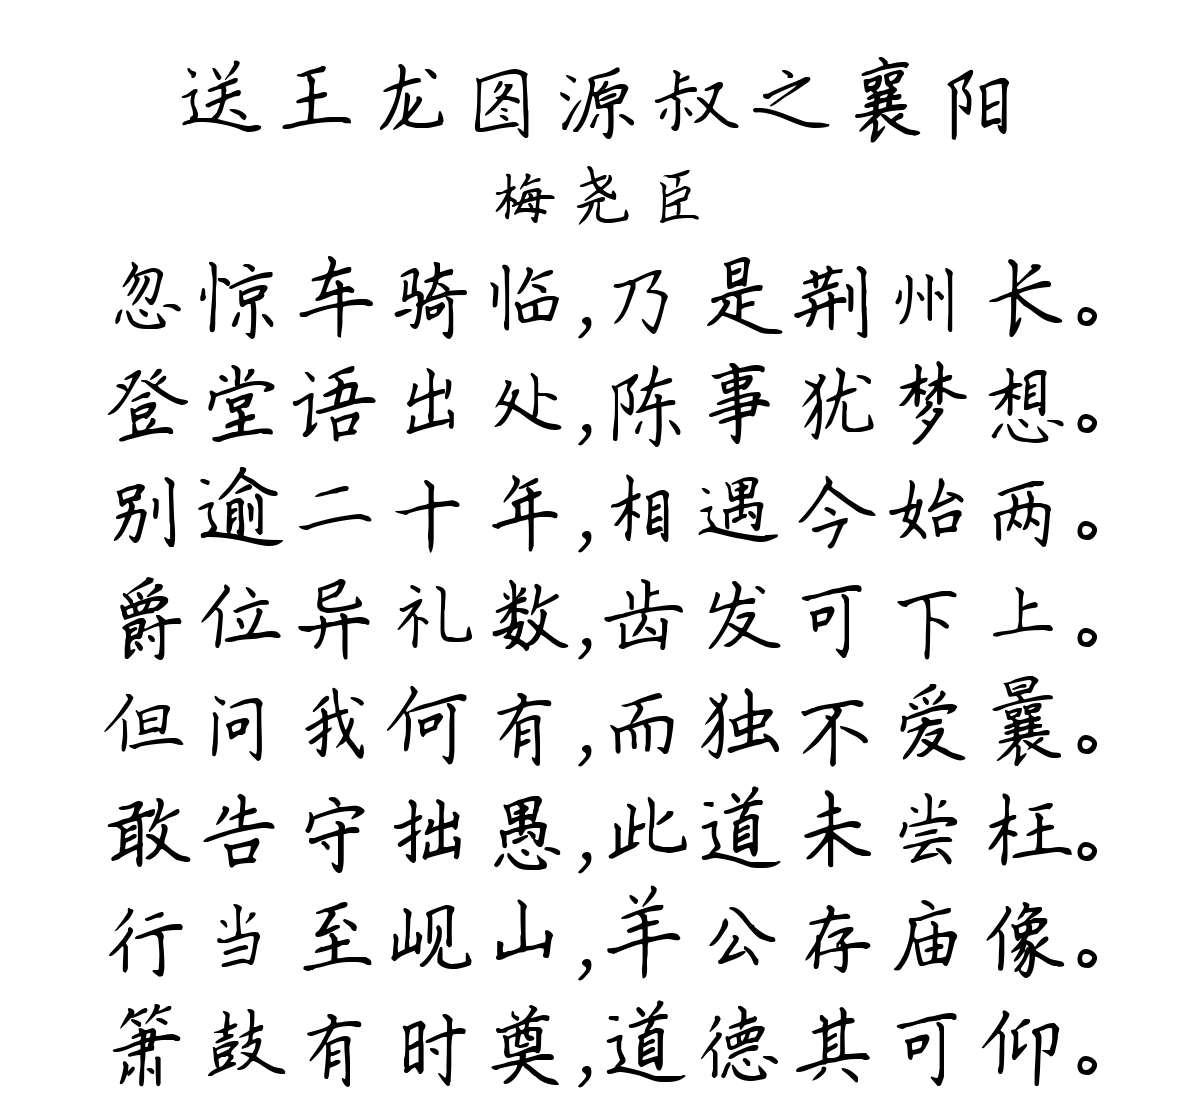 送王龙图源叔之襄阳
梅尧臣
忽惊车骑临,乃是荆州长。
登堂语出处,陈事犹梦想。
别逾二十年,相遇今始两。
爵位异礼数,齿发可下上。
但问我何有,而独不爱曩。
敢告守拙愚,此道未尝枉。
行当至岘山,羊公存庙像。
箫鼓有时奠,道德其可仰。